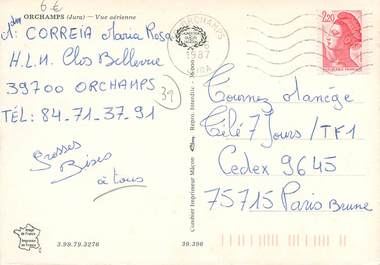 6 €
ORCHAMPS (Jura) - Vue aérienne
CORREIA Maria Rosa
H.L.M. Clos Bellevue
39700 ORCHAMPS
TÉL: 84-71-37.91
39
Grosses
Bises
à tous
ORCHAMPS
1987
JURA
2,20
Tournez Manège
Télé 7 Jours / TF1
Cedex 9645
75715 Paris Brune
Combier Imprimeur Mâcon
Repro. Interdite
3.99.79.3276
39.396